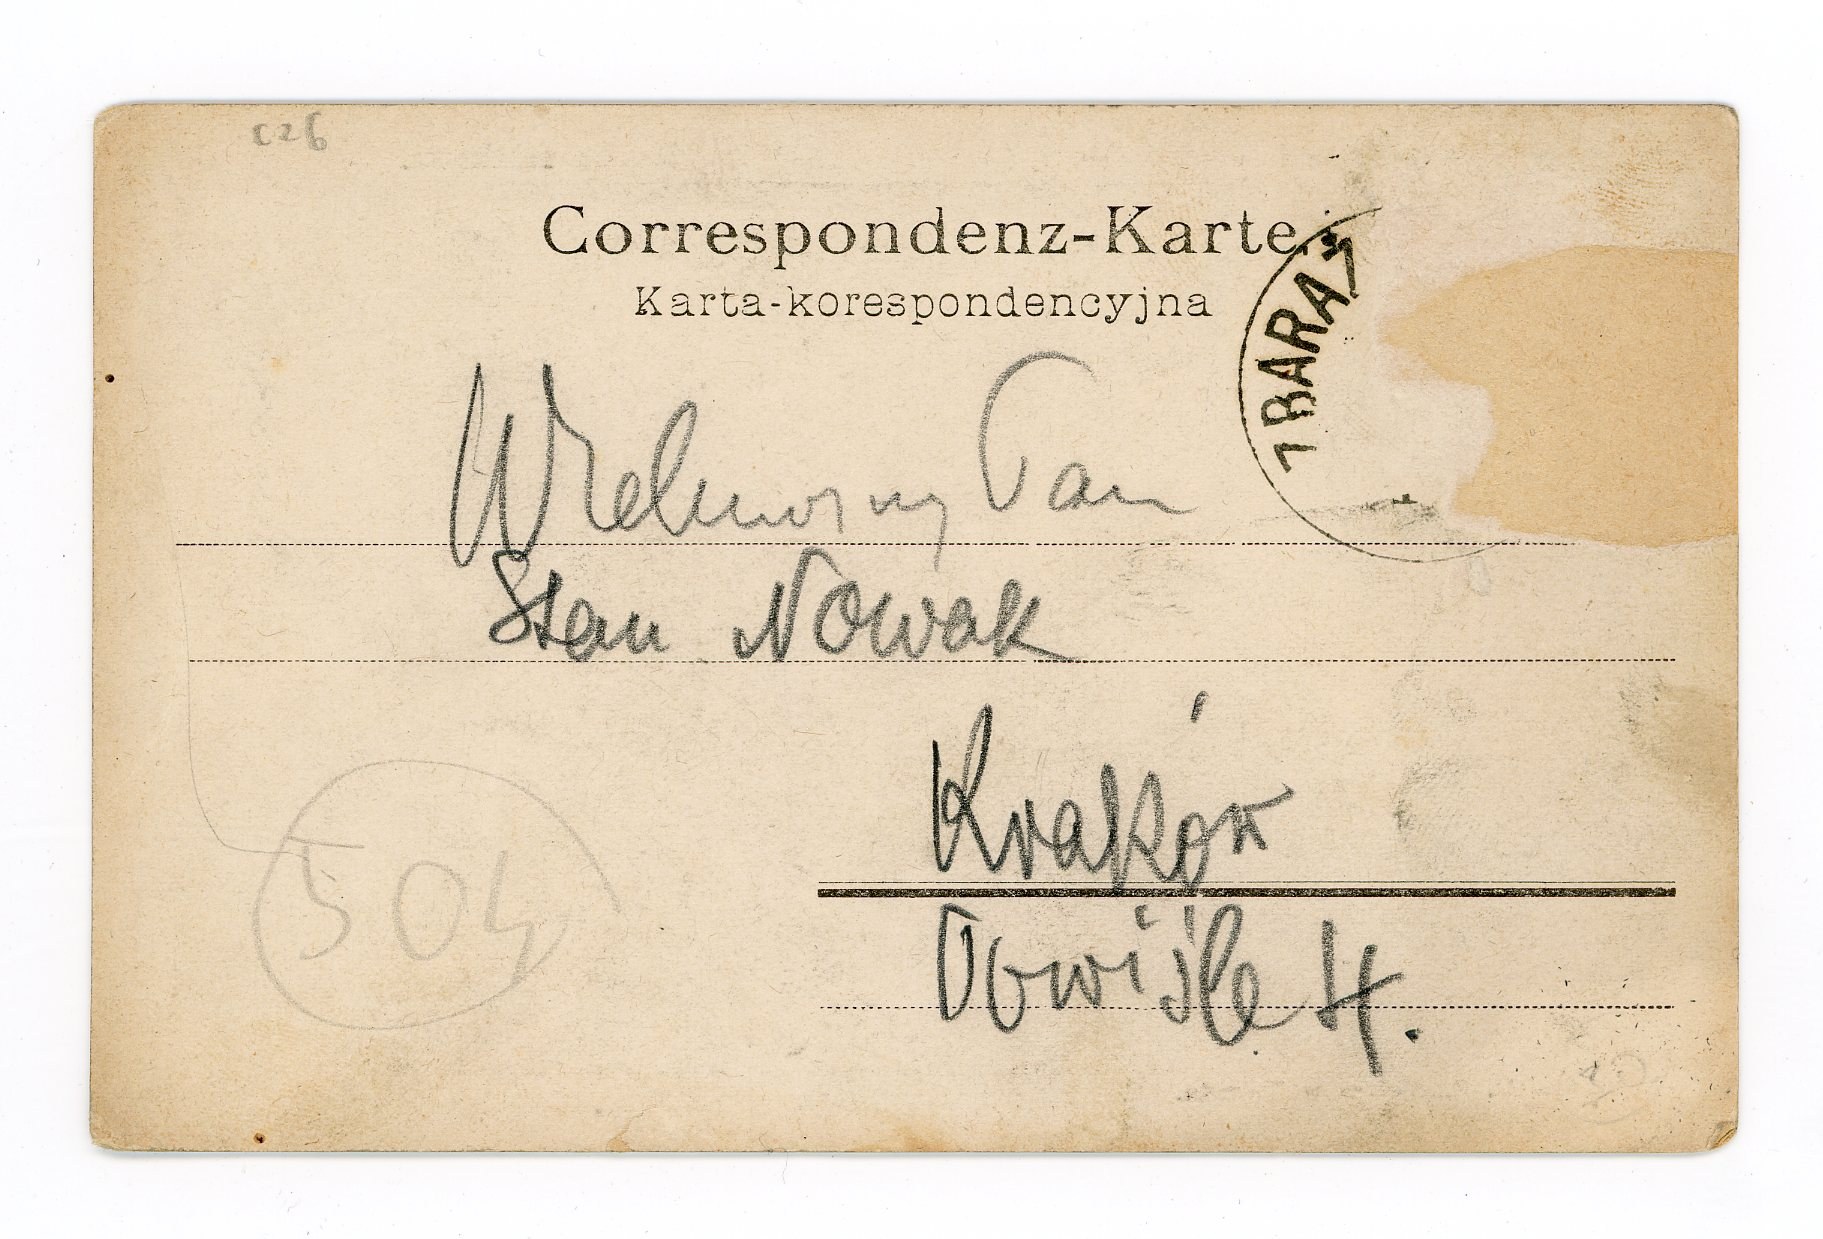 Correspondenz-Karte.
Karta-korespondencyjna
ZBARAŻ
Wielmożny Pan
Stan Nowak
Kraków
Powiśle 4.
504